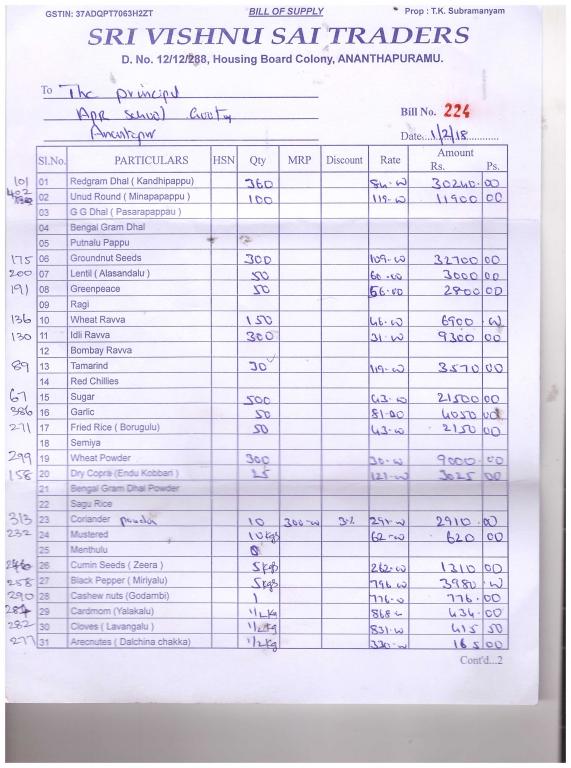 GSTIN: 37ADQPT7063H2ZT BILL OF SUPPLY Prop : T.K. Subramanyam
SRI VISHNU SAI TRADERS
D. No. 12/12/288, Housing Board Colony, ANANTHAPURAMU.
To The principal
APR School Gooty
Anantapur
Bill No. 224
Date...1/2/18
Sl.No. PARTICULARS HSN Qty MRP Discount Rate Amount
Rs. Ps.
101 01 Redgram Dhal (Kandhipappu) 360 84-00 30240.00
402 02 Unud Round (Minapapappu ) 100 119-00 11900 00
03 G G Dhal ( Pasarapappau )
04 Bengal Gram Dhal
05 Putnalu Pappu
175 06 Groundnut Seeds 300 109-00 32700 00
200 07 Lentil ( Alasandalu ) 50 60-00 3000 00
191 08 Greenpeace 50 56-00 2800 00
09 Ragi
136 10 Wheat Ravva 150 46-00 6900.00
130 11 Idli Ravva 300 31-00 9300 00
12 Bombay Ravva
89 13 Tamarind 30 119-00 3570 00
14 Red Chillies
67 15 Sugar 500 43-00 21500 00
386 16 Garlic 50 81-00 4050 00
271 17 Fried Rice ( Borugulu) 50 43-00 2150 00
18 Semiya
299 19 Wheat Powder 300 30-00 9000 00
158 20 Dry Copra (Endu Kobbari ) 25 121-00 3025 00
21 Bengal Gram Dhal Powder
22 Sagu Rice
313 23 Coriander powder 10 300-00 3% 291-00 2910.00
232 24 Mustered 10kgs 62-00 620 00
25 Menthulu
26 Cumin Seeds ( Zeera ) 5kgs 262-00 1310 00
258 27 Black Pepper ( Miriyalu) 5kgs 796-00 3980.00
290 28 Cashew nuts (Godambi) 1 776-00 776.00
287 29 Cardmom (Yalakalu) 1/2kg 868- 434.00
282 30 Cloves ( Lavangalu ) 1/2kg 831-00 415 50
277 31 Arecnutes ( Dalchina chakka) 1/2kg 330-00 165 00
Cont'd...2